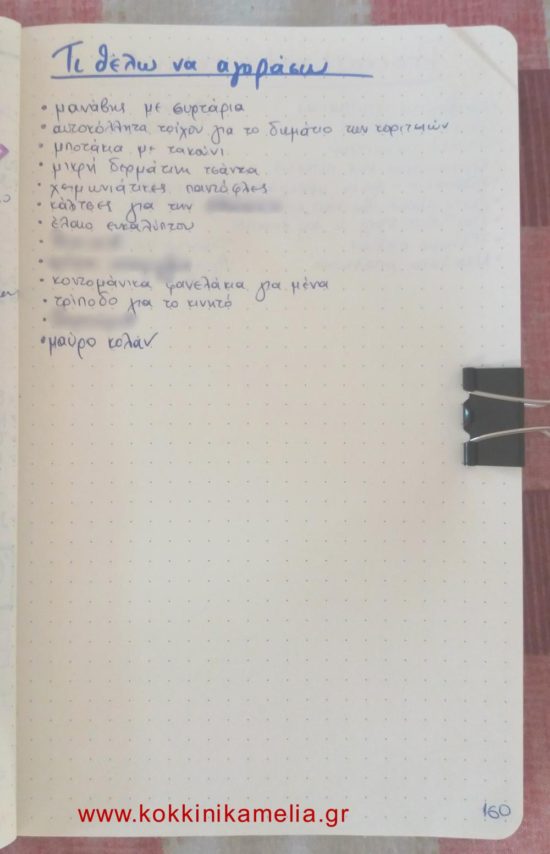 Τι θέλω να αγοράσω
• μανάβης με συρτάρια
• αυτοκόλλητα τοίχου για το δωμάτιο των κοριτσιών
• μποτάκια με τακούνι
• μικρή δερμάτινη τσάντα
• χειμωνιάτικες παντόφλες
• κάλτσες για την
• έλαιο ευκαλύπτου
•
•
• κοντομάνικα φανελάκια για μένα
• τρίποδο για το κινητό
•
• μαύρο κολάν
160
www.kokkinikamelia.gr